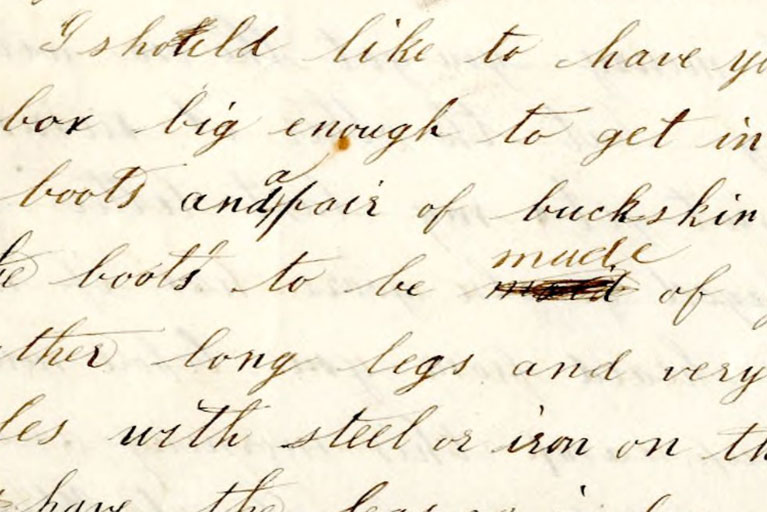 I should like to have yo
box big enough to get in
boots and a pair of buckskin
boots to be made of
ther long legs and very
les with steel or iron on th
have the legs